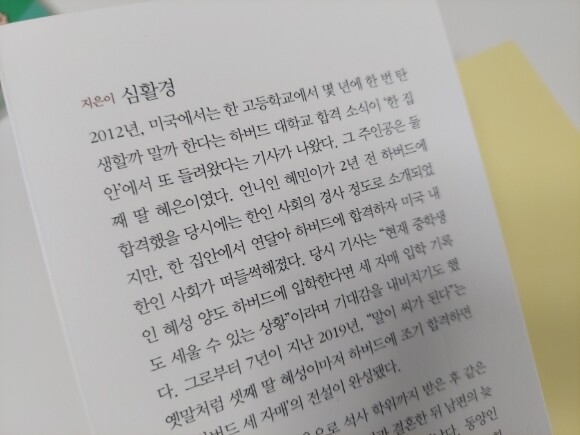 지은이 심활경
2012년, 미국에서는 한 고등학교에서 몇 년에 한 번 탄
생할까 말까 한다는 하버드 대학교 합격 소식이 ‘한 집
안’에서 또 들려왔다는 기사가 나왔다. 그 주인공은 둘
째 딸 혜은이었다. 언니인 혜민이가 2년 전 하버드에
합격했을 당시에는 한인 사회의 경사 정도로 소개되었
지만, 한 집안에서 연달아 하버드에 합격하자 미국 내
한인 사회가 떠들썩해졌다. 당시 기사는 “현재 중학생
인 혜성 양도 하버드에 입학한다면 세 자매 입학 기록
도 세울 수 있는 상황”이라며 기대감을 내비치기도 했
다. 그로부터 7년이 지난 2019년, “말이 씨가 된다”는
옛말처럼 셋째 딸 혜성이마저 하버드에 조기 합격하면
하버드 세 자매’의 전설이 완성됐다.
으로 석사 학위까지 받은 후 같은
결혼한 뒤 남편의 늦
동양인